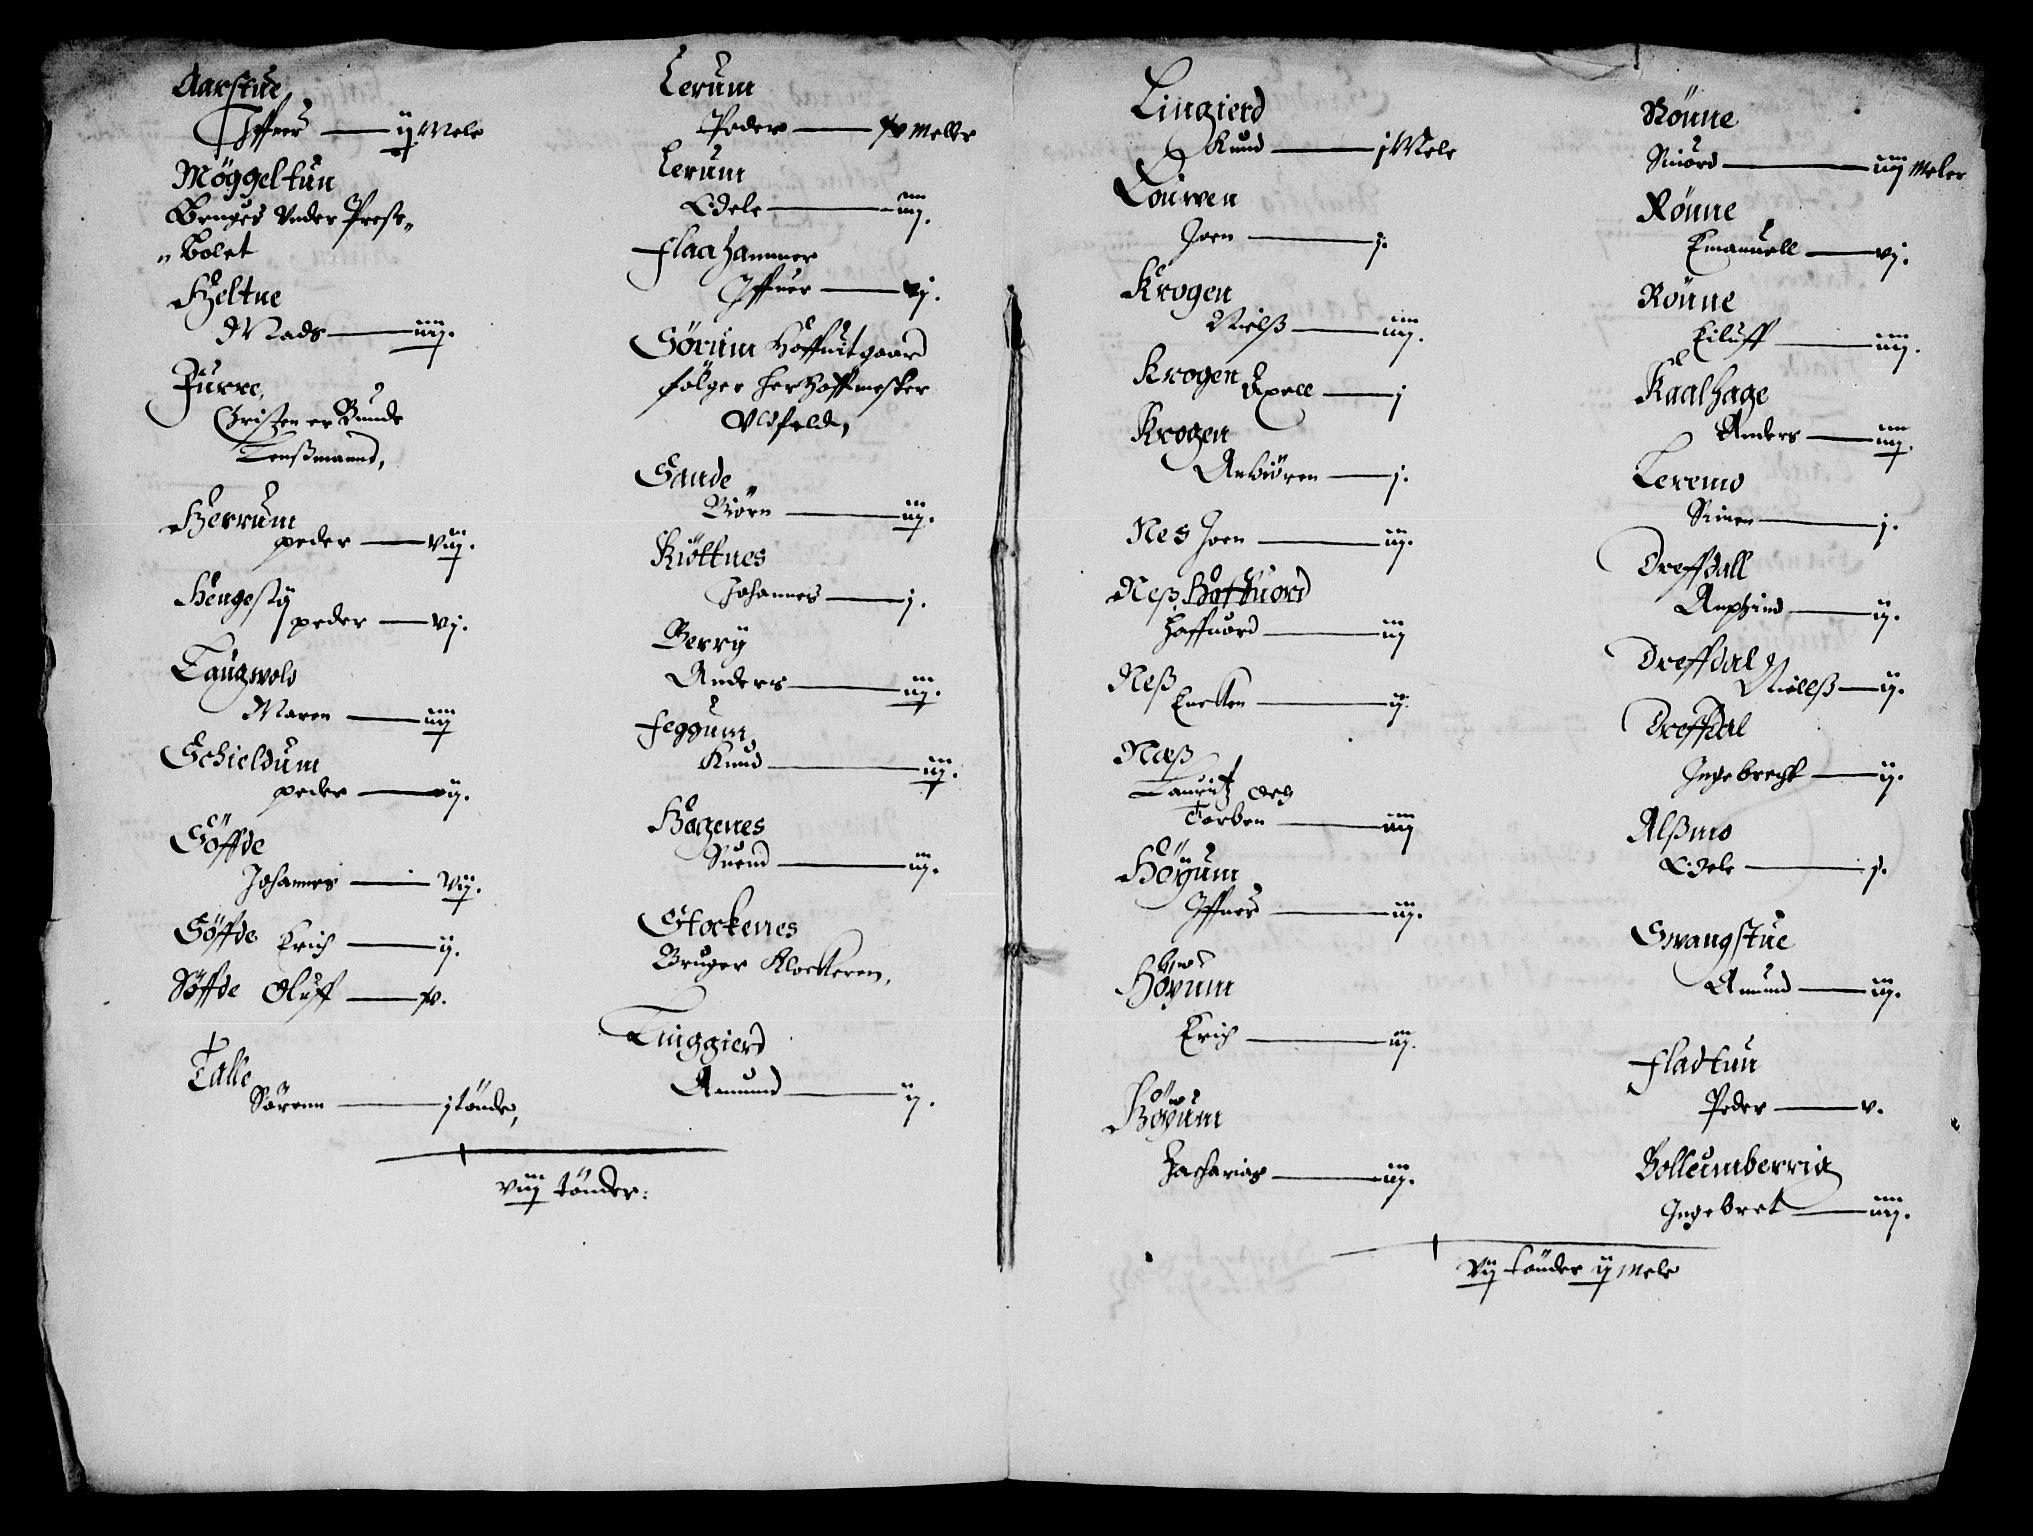 Aarstue,
Iffuer — ij Mele
Möggeltun
Bruges Vnder Prest„
„Bolet
Hieltne
Mads — iiij.
Furre,
Christen er Bunde
Lenßmannd,
Herrum
peder — viij.
Hengestÿ
peder — vj.
Taugwold
Maren — iiij
Schieldum
peder — ij.
Söffde
Johannes — vij.
Söffde Erich — ij.
Söffde Oluff — iv.
Talle
Sörenn — j tönde,
viij tönder:
Lerum
Peder — iv Meler
Lerum
Edele — iiij.
Flaahammer
Iffuer — vj.
Sörum Hoffuitgaard
fölger her Hoffmester
Vldfeld,
Sande
Biörn — iij.
Kiöttnes
Johannes — j.
Berrÿ
Anders — iij.
Feggum
Knud — iij.
Hagenes
Suend — iij.
Stockenes
Bruger Klockeren,
Linggierd
Amund — ij.
Lingierd
Knud — j Mele
Louwen
Joen — j.
Krogen
Nielß — iiij.
Krogen Axell — j
Krogen
Arbiören — j.
Nes Joen — iij.
Neß
Haffuord — iij
Neß
— ij.
Næß
Lauritz och
Torben — iiij
Höyum
Iffuer — iij.
Höyum
Erich — iij.
Höyum
Zacharias — iij.
Rönne
Siuord — iiij Meler
Rönne
Emanuell — vj.
Rönne
Eiluff — iiij.
Kaalhage
Anders — iiij.
Leremo
Simen — j.
Dreffdall
Anphind — ij.
Dreffdal
Niellß — ij.
Dreffdal
Ingebrecht — ij.
Alßmo
Edele — j.
Swangstue
Amund — iij.
Fladtun
Peder — v.
Bolleumberria
Ingebret — iiij.
vij tönder ij Mele